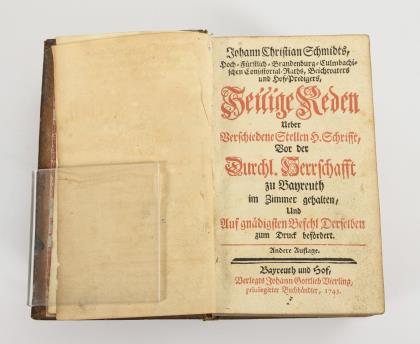 Johann Christian Schmidts,
Hoch-Fürstlich-Brandenburg-Culmbachi-
schen Consistorial-Raths, Beichtvaters
und Hof-Predigers,
Heilige Reden
Ueber
Verschiedene Stellen H. Schrifft,
Vor der
Durchl. Herrschafft
zu Bayreuth
im Zimmer gehalten,
Und
Auf gnädigsten Befehl Derselben
zum Druck befördert.
Andere Auflage.
Bayreuth und Hof,
Verlegts Johann Gottlieb Vierling,
privilegirter Buchhändler, 1743.